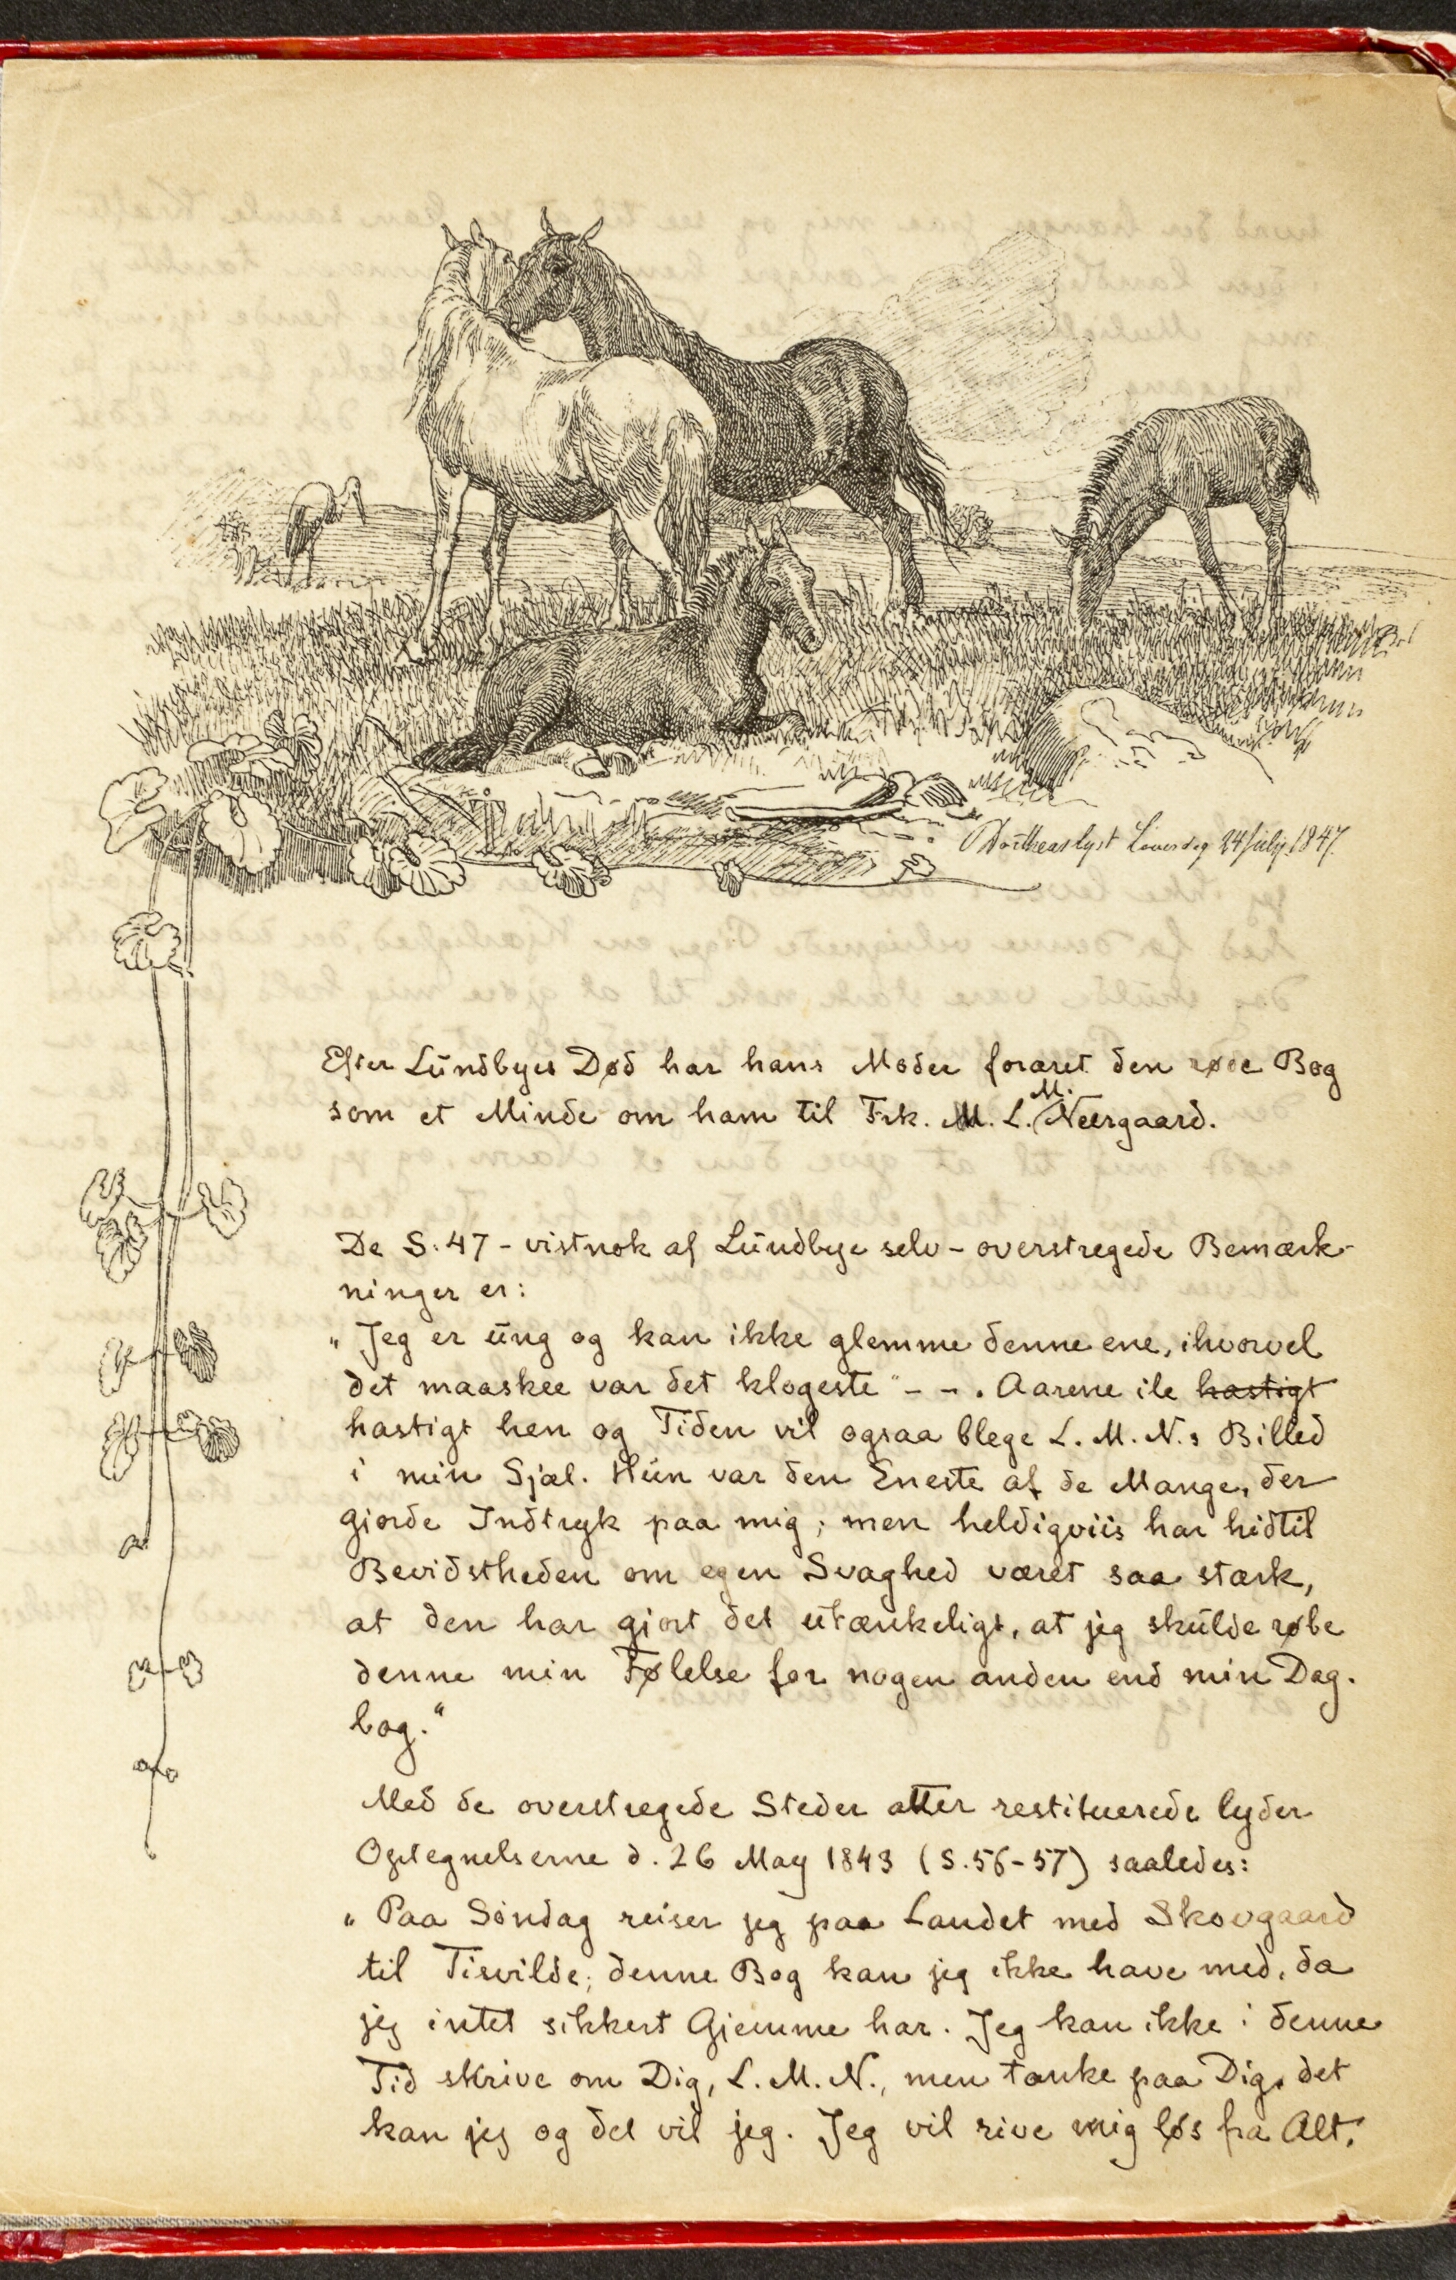 Dorthealyst Löverdag 24 July 1847.
Efter Lundbyes Død har hans Moder foræret den røde Bog
som et Minde om ham til Frk. M. L. M. Neergaard.
De S. 47 - vistnok af Lundbye selv - overstregede Bemærk-
ninger er:
„Jeg er ung og kan ikke glemme denne ene, ihvorvel
det maaskee var det klogeste" - - . Aarene ile hastigt
hastigt hen og Tiden vil ogsaa blege L. M. N.s Billed
i min Sjæl. Hun var den Eneste af de Mange, der
gjorde Indtryk paa mig; men heldigviis har hidtil
Bevidstheden om egen Svaghed været saa stærk,
at den har gjort det utænkeligt, at jeg skulde røbe
denne min Følelse for nogen anden end min Dag-
bog."
Med de overstregede Steder atter restituerede lyder
Optegnelserne d. 26 May 1843 (S. 56-57) saaledes:
„Paa Søndag reiser jeg paa Landet med Skovgaard
til Tisvilde; denne Bog kan jeg ikke have med, da
jeg intet sikkert Gjemme har. Jeg kan ikke i denne
Tid skrive om Dig, L. M. N., men tænke paa Dig, det
kan jeg og det vil jeg. Jeg vil rive mig løs fra Alt,